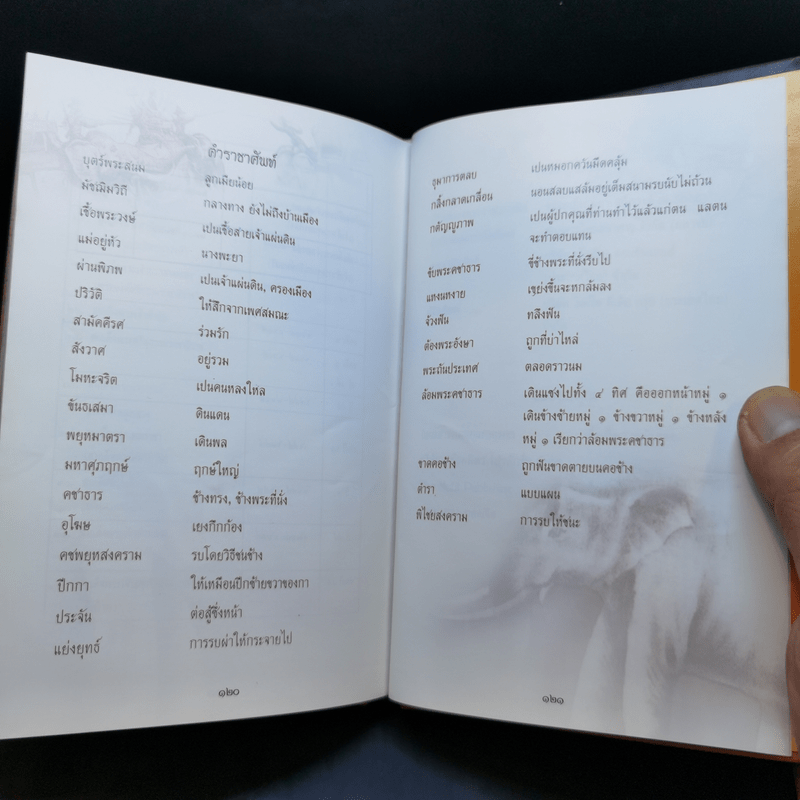 คำราชาศัพท์
บุตร์พระสนม ลูกเมียน้อย
มัชฌิมวิถี กลางทาง ยังไม่ถึงบ้านเมือง
เชื้อพระวงษ์ เปนเชื้อสายเจ้าแผ่นดิน
แม่อยู่หัว นางพะยา
ผ่านพิภพ เปนเจ้าแผ่นดิน, ครองเมือง
ปริวัติ ให้สึกจากเพศสมณะ
สามัคคีรศ ร่วมรัก
สังวาศ อยู่รวม
โมหะจริต เปนคนหลงใหล
ขันธเสมา ดินแดน
พยุหมาตรา เดินพล
มหาศุภฤกษ์ ฤกษ์ใหญ่
คชาธาร ช้างทรง, ช้างพระที่นั่ง
อุโฆษ เยงกึกก้อง
คชพยุหสงคราม รบโดยวิธีชนช้าง
ปีกกา ให้เหมือนปีกซ้ายขวาของกา
ประจัน ต่อสู้ซึ่งหน้า
แย่งยุทธ์ การรบผ่าให้กระจายไป
๑๒๐
ธุมาการตลบ เปนหมอกควันมืดคลุ้ม
กลิ้งกลาดเกลื่อน นอนสลบแสล้มอยู่เต็มสนามรบนับไม่ถ้วน
กตัญญูภาพ เปนผู้ปกคุณที่ท่านทำไว้แล้วแก่ตน แลตน
จะทำตอบแทน
ขับพระคชาธาร ขี่ช้างพระที่นั่งรีบไป
แหงนหงาย เขย่งขึ้นจะหกล้มลง
จ้วงฟัน ทลึงฟัน
ต้องพระอังษา ถูกที่บ่าไหล่
พระถันประเทศ ตลอดราวนม
ล้อมพระคชาธาร เดินแซงไปทั้ง ๔ ทิศ คือออกหน้าหมู่ ๑
เดินข้างซ้ายหมู่ ๑ ข้างขวาหมู่ ๑ ข้างหลัง
หมู่ ๑ เรียกว่าล้อมพระคชาธาร
ขาดคอช้าง ถูกฟันขาดตายบนคอช้าง
ตำรา แบบแผน
พิไชยสงคราม การรบให้ชนะ
๑๒๑